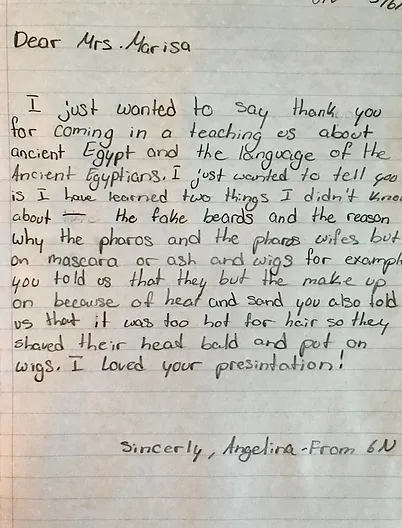 Dear Mrs. Marisa
I just wanted to say thank you
for coming in a teaching us about
ancient Egypt and the language of the
Ancient Egyptians. I just wanted to tell you
is I have learned two things I didn't know
about — the fake beards and the reason
why the pharos and the pharos wifes but
on mascara or ash and wigs for exampl
you told us that they but the make up
on because of heat and sand you also told
us that it was too hot for hair so they
shaved their head bald and put on
wigs. I loved your presintation!
Sincerly, Angelina-From 6N